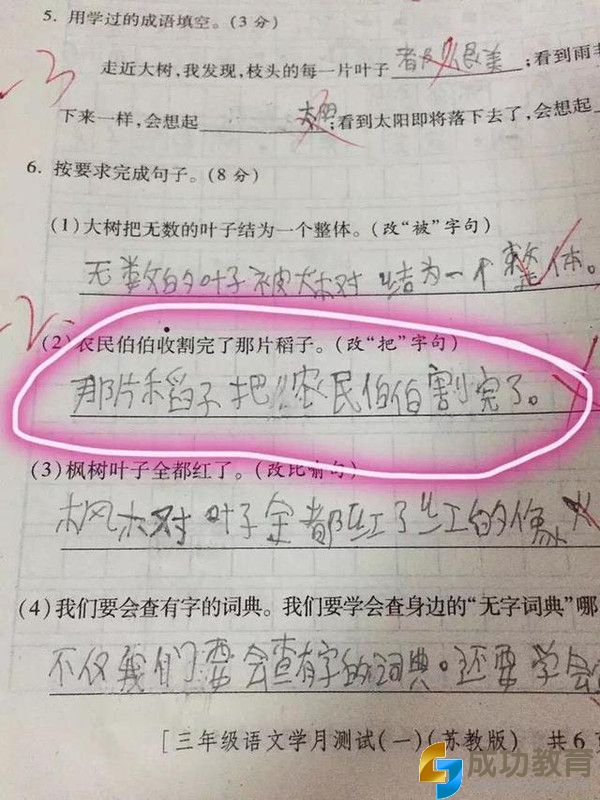 5. 用学过的成语填空。(3分)
3
走近大树,我发现,枝头的每一片叶子 都很美 ;看到雨
下来一样,会想起 太阳 ;看到太阳即将落下去了,会想起
6. 按要求完成句子。(8分)
(1)大树把无数的叶子结为一个整体。(改“被”字句)
无数的叶子被大树结为一个整体。
2
(2)农民伯伯收割完了那片稻子。(改“把”字句)
那片稻子把农民伯伯割完了。
(3)枫树叶子全都红了。(改比喻句)
枫树叶子全都红了红的像
(4)我们要会查有字的词典。我们要学会查身边的“无字词典”哪
不仅我们要会查有字的词典。还要学会
[三年级语文学月测试(一)(苏教版) 共6页
成功教育